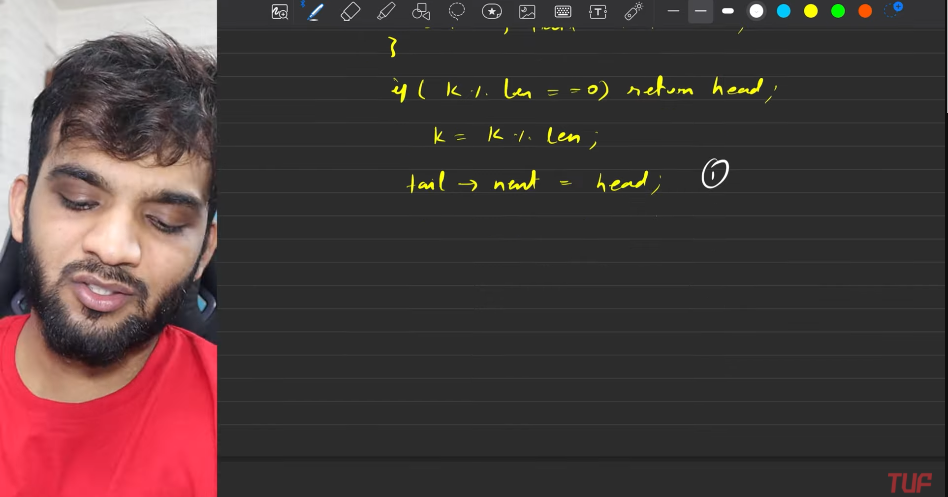 }
if ( k % len == 0) return head;
k = k % len;
tail → next = head; ①
TUF